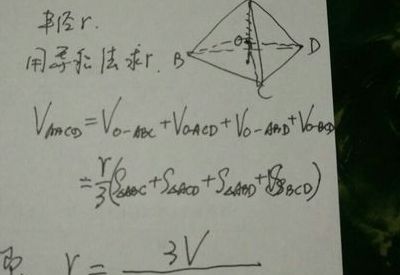 半径r.
用等积法求r.
B O D
C
V_{ABCD}=V_{O-ABC}+V_{O-ACD}+V_{O-ABD}+V_{O-BCD}
=\frac{r}{3}(S_{△ABC}+S_{△ACD}+S_{△ABD}+S_{△BCD})
即 r=\frac{3V}{}